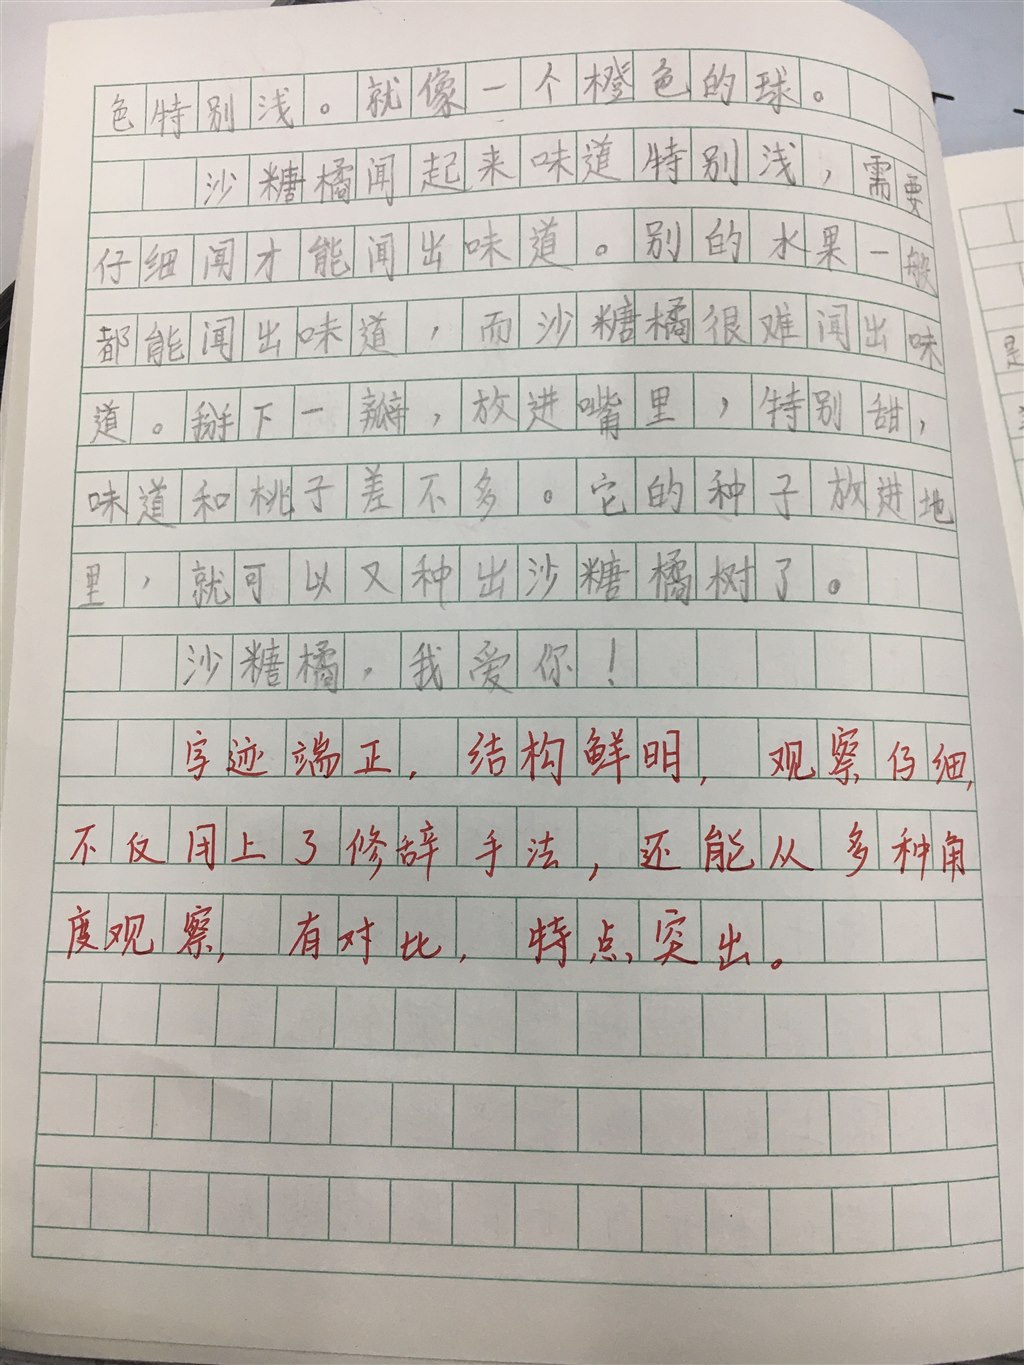 色特别浅。就像一个橙色的球。
沙糖橘闻起来味道特别浅，需要
仔细闻才能闻出味道。别的水果一般
都能闻出味道，而沙糖橘很难闻出味
道。掰下一瓣，放进嘴里，特别甜，
味道和桃子差不多。它的种子放进地
里，就可以又种出沙糖橘树了。
沙糖橘，我爱你！
字迹端正，结构鲜明，观察仔细，
不仅用上了修辞手法，还能从多种角
度观察，有对比，特点突出。